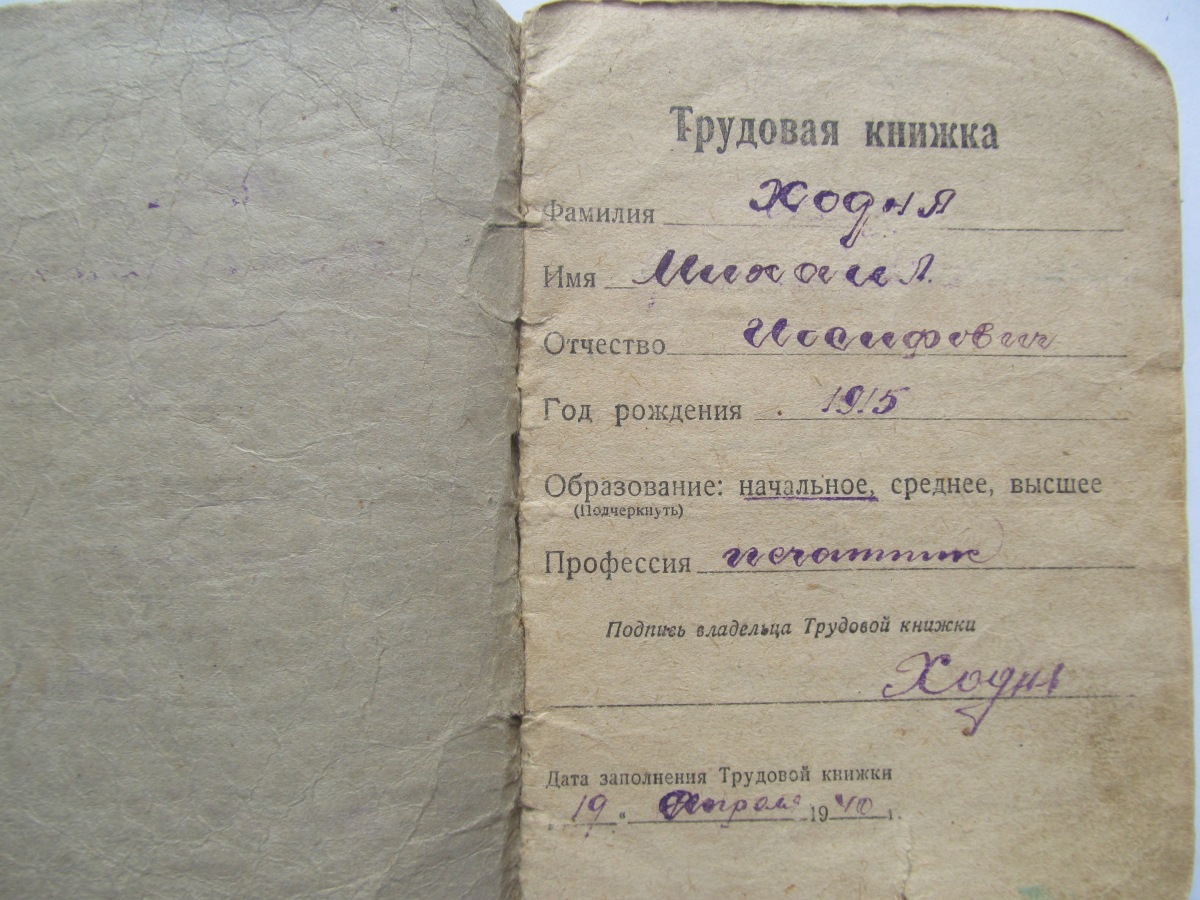 Трудовая книжка
Фамилия Ходня
Имя Михаил
Отчество Иосифович
Год рождения 1915
Образование: начальное, среднее, высшее
(Подчеркнуть)
Профессия печатник
Подпись владельца Трудовой книжки
Ходня
Дата заполнения Трудовой книжки
19 " Апреля 1940 г.